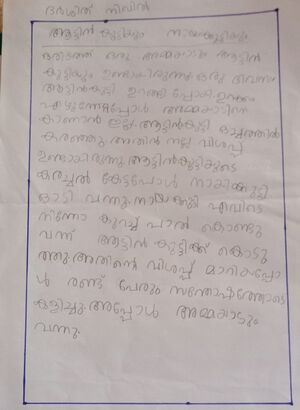 ദർശിത് നിഖിൽ
ആട്ടിൻ കുട്ടിയും നായകുട്ടിയും
ഒരിടത്ത് ഒരു അമ്മയാടും ആട്ടിൻ
കുട്ടിയും ഉണ്ടായിരുന്നു. ഒരു ദിവസം
ആട്ടിൻകുട്ടി ഉറങ്ങി പ്പോയി.
എഴുന്നേറ്റപ്പോൾ അമ്മയാടിനെ
കാണാൻ ഇല്ല. ആട്ടിൻകുട്ടി ഉച്ചത്തിൽ
കരഞ്ഞു. അതിന് നല്ല വിശപ്പ്
ഉണ്ടായിരുന്നു. ആട്ടിൻകുട്ടിയുടെ
കരച്ചൽ കേട്ടപോൾ നായക്കുട്ടി
ഓടി വന്നു. നായക്കുട്ടി എവിടെ
നിന്നോ കുറച്ച് പാൽ കൊണ്ടു
വന്ന് ആട്ടിൻ കുട്ടിക്ക് കൊടു
ത്തു. അതിന്റെ വിശപ്പ് മാറിയപ്പോ
ൾ രണ്ട് പേരും സന്തോഷത്തോടെ
കളിച്ചു. അപ്പോൾ അമ്മയാടും
വന്നു.